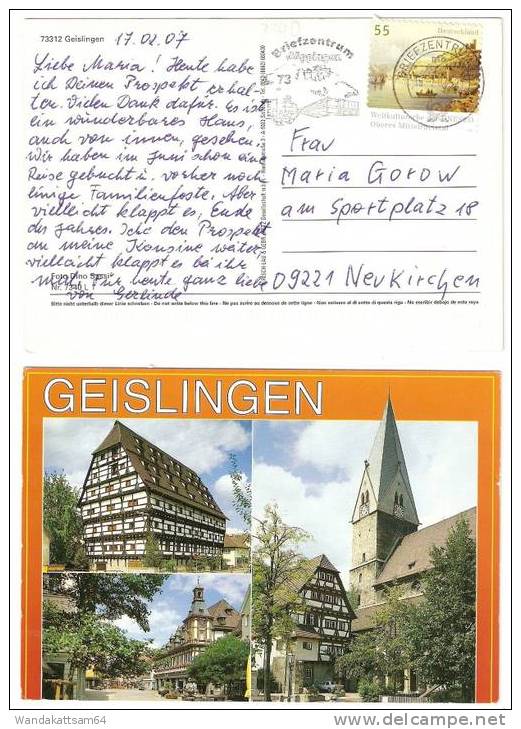 73312 Geislingen
17.02.07
Liebe Maria! Heute habe
ich Deinen Prospekt erhal-
ten. Vielen Dank dafür. Es ist
ein wunderbares Haus,
auch von innen, gesehen.
Wir haben im Juni schon ein
Reise gebucht u. vorher noch
einige Familienfeste. Aber
vielleicht klappt es, Ende
des Jahres. Gebe den Prospekt
an meine Kousine weiter
vielleicht klappt es bei ihr
mal. Für heute ganz liebe
von Gerlinde
Foto Dino Sassi
Nr. 7340 L
Briefzentrum
73
55
Deutschland
BRIEFZENTRUM
Weltkulturerbe der UNESCO
Oberes Mittelrheintal
Frau
Maria Gorow
am Sportplatz 18
09221 Neukirchen
Bitte nicht unterhalb dieser Linie schreiben - Do not write below this line - Ne pas écrire au dessous de cette ligne - Non scrivere al di sotto di questa riga - No escribir debajo de esta raya
GEISLINGEN
Wandakattsam64
www.delcampe.net